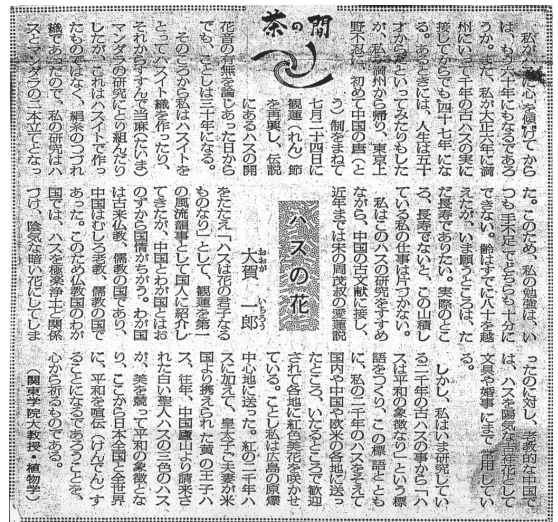 茶の間
ハスの花
大賀 一郎
おおが いちろう
私がハスに心を傾けてから
は、もう六十年にもなるであろ
うか。また、私が大正六年に満
州にいって千年の古ハスの実に
接してからでも四十七年にな
る。あるときには、人生は五十
才からだといってみたりもした
が、私が満州から帰り、東京上
野不忍に、初めて中国の唐（と
う）制をまねて
七月二十四日に
観蓮（れん）節
を再興し、伝説
にあるハスの開
花音の有無を論じあった日から
でも、ことしは三十年になる。
そのころから私はハスイトを
とってハスイト織を作ったり、
それからすすんで当麻（たいま）
マンダラの研究にとり組んだり
したが、これはハスイトで作っ
たものではなく、絹糸のつづれ
織であったので、私の研究はハ
スとマンダラの二本立てとなっ
た。このため、私の勉強は、い
つも手不足でどちらも十分に
できない。齢はすでに八十を越
えたが、いま願うところは、た
だ長寿でありたい。実際のとこ
ろ、長寿でないと、この山積し
ている私の仕事は片づかない。
私はこのハスの研究をすすめ
ながら、中国の古文献に接し、
近年までは宋の周茂叔の愛蓮説
をたたえ「ハスは花の君子なる
ものなり」として、観蓮を第一
の風流韻事として国人に紹介し
てきたが、中国とわが国とはお
のずから国情がちがう。わが国
は古来仏教、儒教の国であり、
中国はむしろ老教、儒教の国で
あった。このため仏教国のわが
国では、ハスを極楽浄土と関係
づけ、陰気な暗い花としてしま
ったのに対し、老教的な中国で
は、ハスを陽気な吉祥花として
文具や婚事にまで常用してい
る。
しかし、私はいま研究してい
る二千年の古ハスの事から「ハ
スは平和の象徴なり」という標
語をつくり、この標語ととも
に、私の二千年のハスをそえて
国内や中国や欧米の各地に送っ
たところ、いたるところで歓迎
されて各地に紅色美花を咲かせ
ている。ことし私は広島の原爆
中心地に送った。紅の二千年ハ
スに加えて、皇太子ご夫妻が米
国より携えられた黄の王子ハ
ス、往年、中国廬山より請来さ
れた白い聖人ハスの三色のハス
が、美を競って平和の象徴とな
り、ここから日本全国と全世界
に、平和を喧伝（けんでん）す
ることになるであろうことを、
心から祈るものである。
（関東学院大教授・植物学）